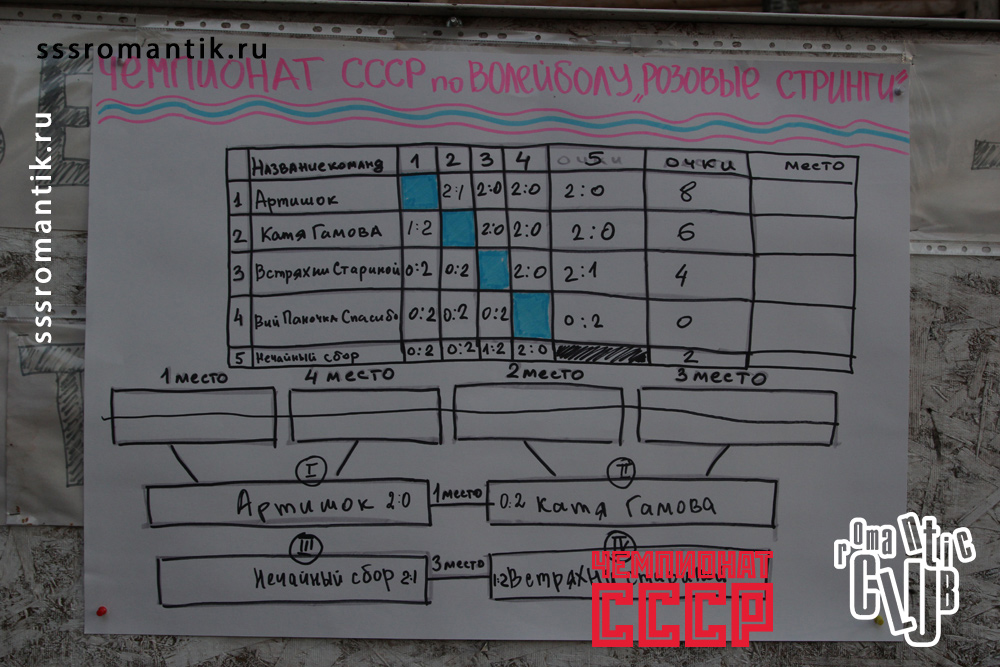 sssromantik.ru
sssromantik.ru
ЧЕМПИОНАТ СССР по ВОЛЕЙБОЛУ „РОЗОВЫЕ СТРИНГИ"
Название команд 1 2 3 4 5 очки место
1 Артишок 2:1 2:0 2:0 2:0 8
2 Катя Гамова 1:2 2:0 2:0 2:0 6
3 Встряхни Стариной 0:2 0:2 2:0 2:1 4
4 Вий Паночка Спасибо 0:2 0:2 0:2 0:2 0
5 Нечайный сбор 0:2 0:2 1:2 2:0 2
1 место 4 место 2 место 3 место
I II
Артишок 2:0 1 место 0:2 Катя Гамова
III IV
Нечайный сбор 2:1 3 место 1:2 Встряхни
ЧЕМПИОНАТ
СССР
romantic
CLUB